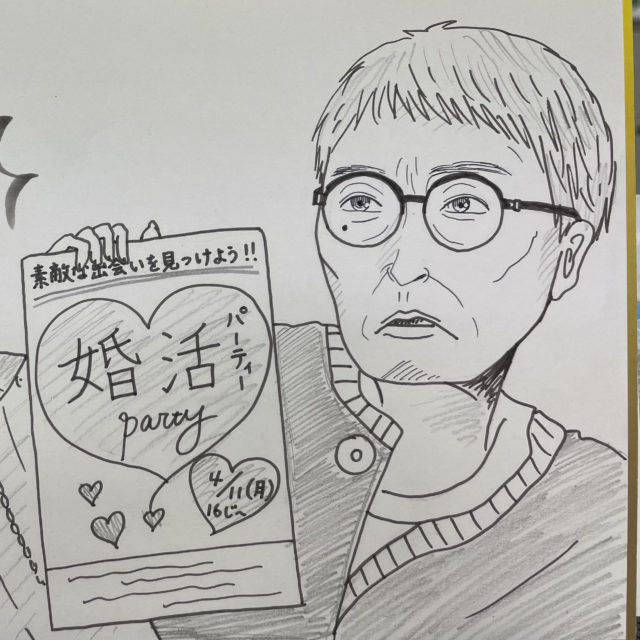 素敵な出会いを見つけよう!!
婚活
パーティー
party
4/11(月)
16じ〜